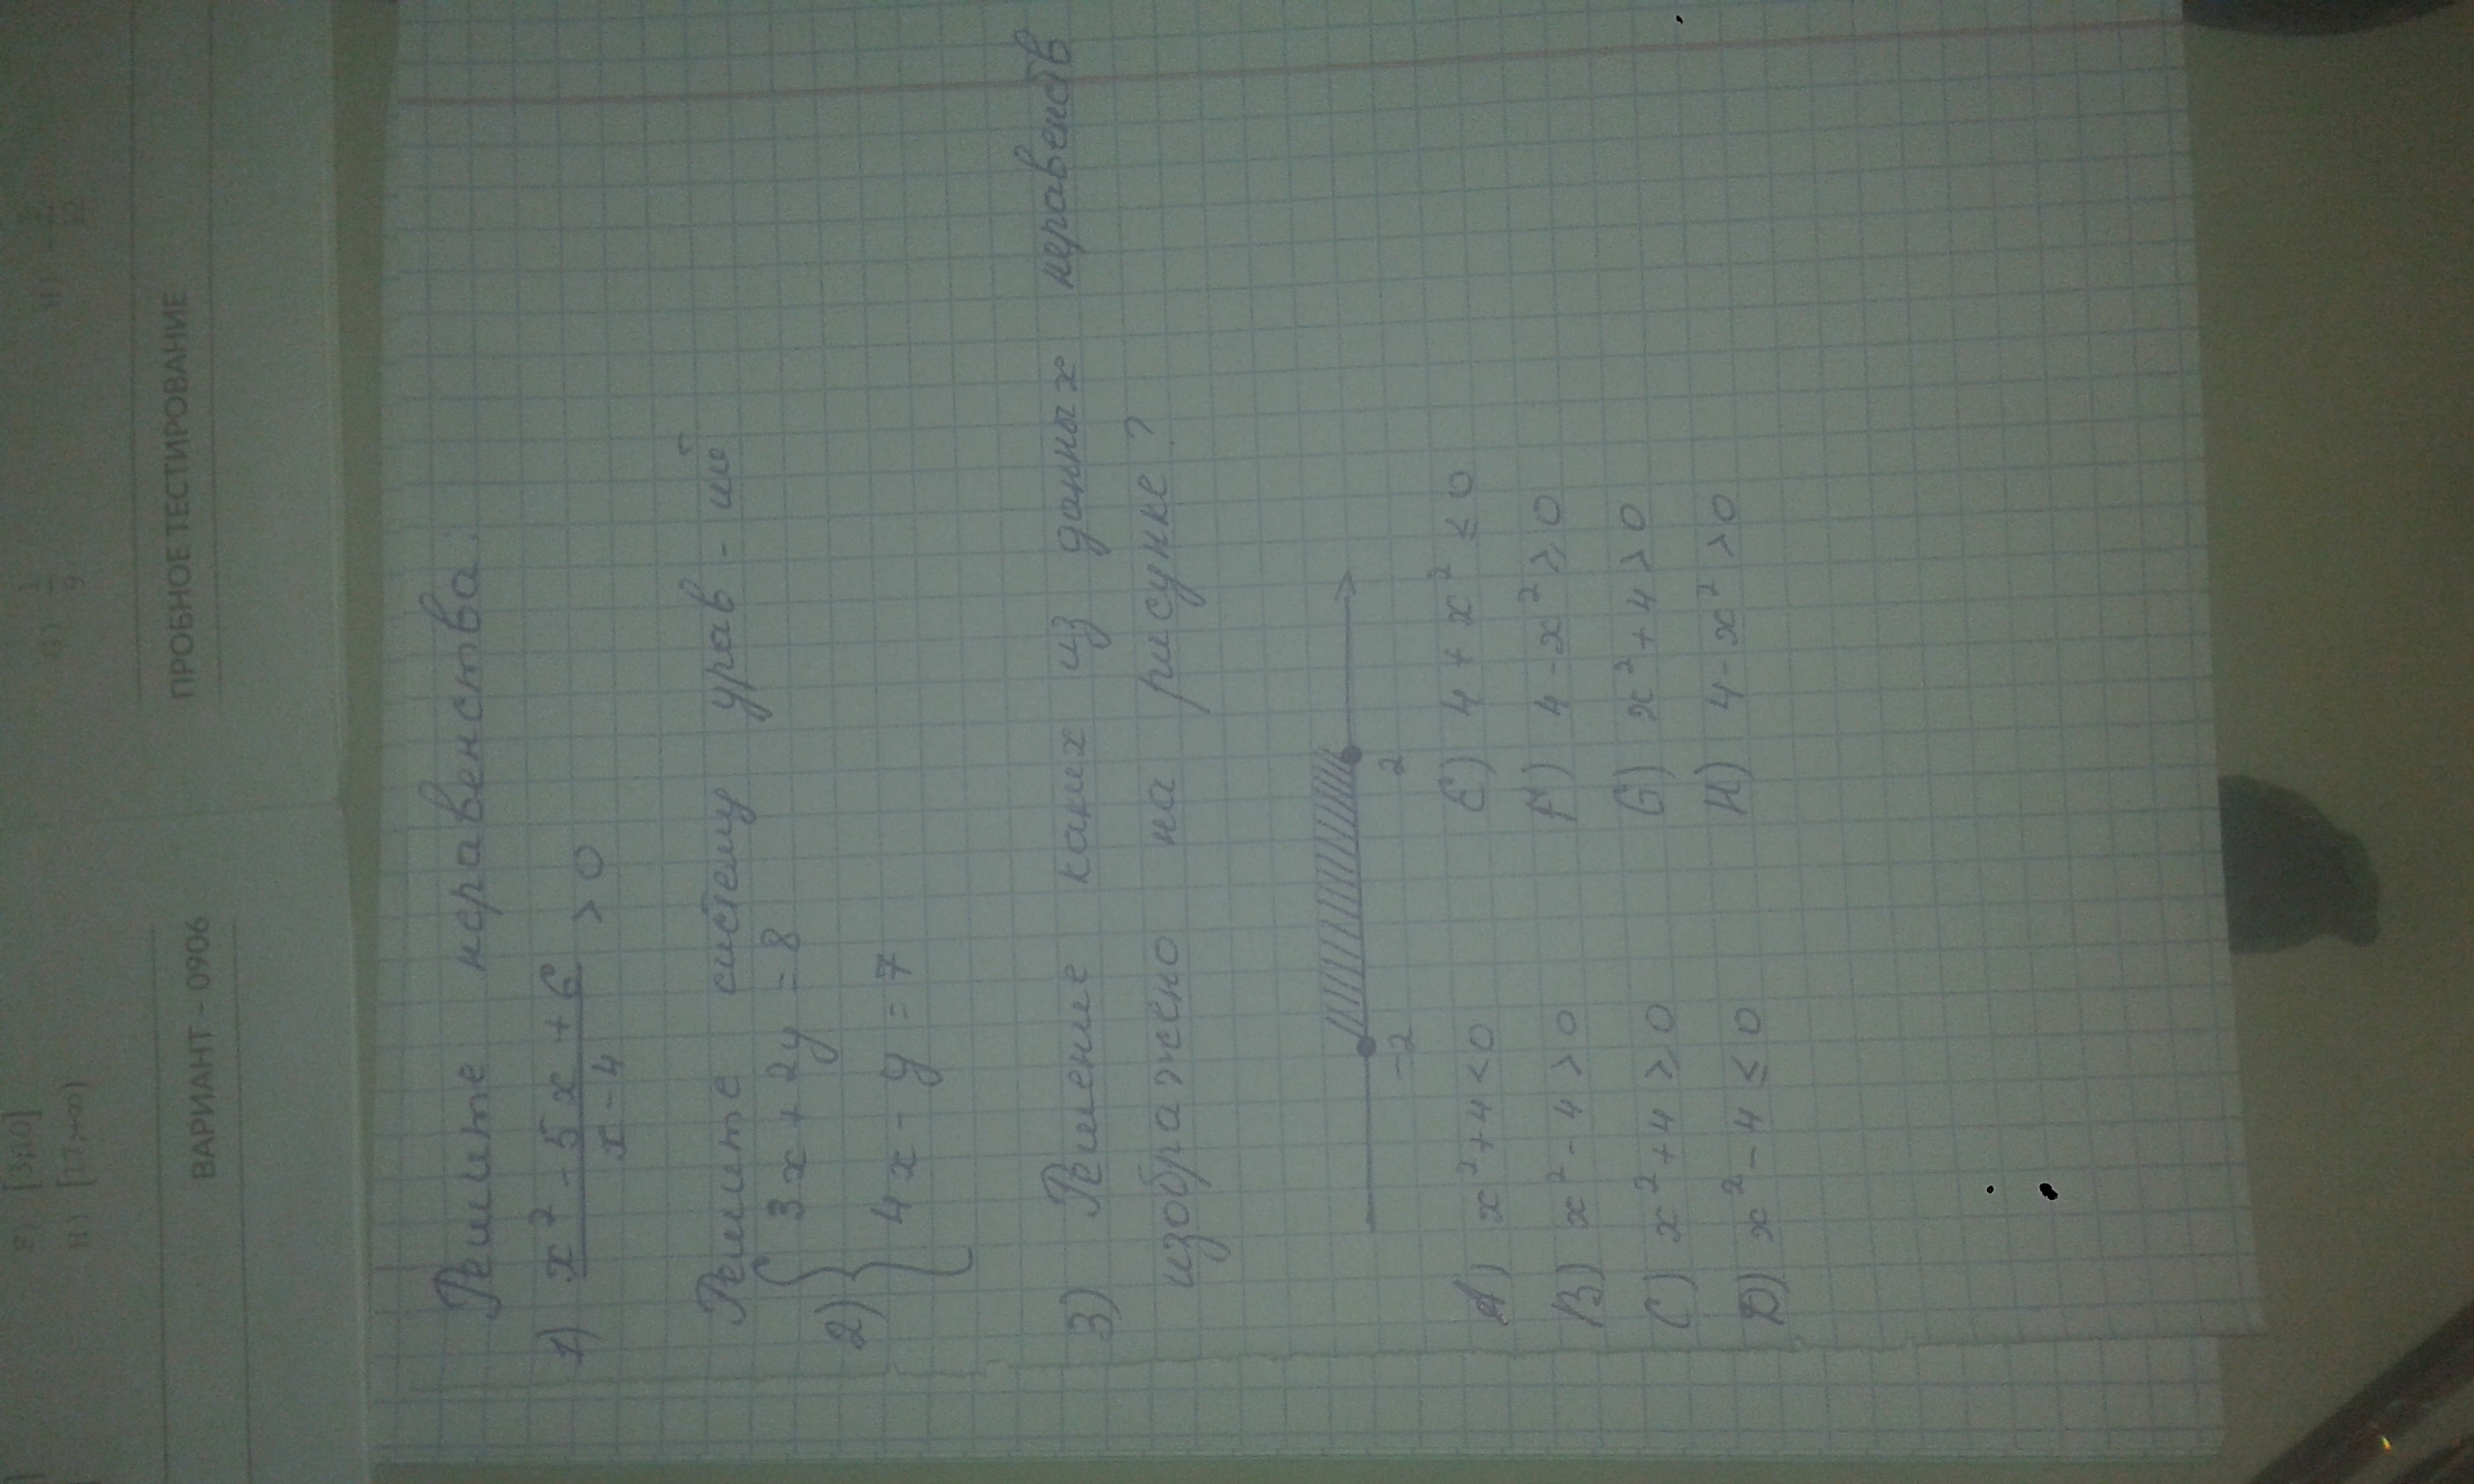 [3;0]
H) [17;+∞)
G) 1/9
ВАРИАНТ - 0906
ПРОБНОЕ ТЕСТИРОВАНИЕ
Решите неравенства:
1) x² - 5x + 6 / x - 4 > 0
Решите систему урав-ий
2) { 3x + 2y = 8
4x - y = 7
3) Решение каких из данных неравенств
изображено на рисунке?
-2 2
A) x² + 4 < 0 E) 4 + x² ≤ 0
B) x² - 4 > 0 F) 4 - x² ≥ 0
C) x² + 4 ≥ 0 G) x² + 4 > 0
D) x² - 4 ≤ 0 H) 4 - x² > 0